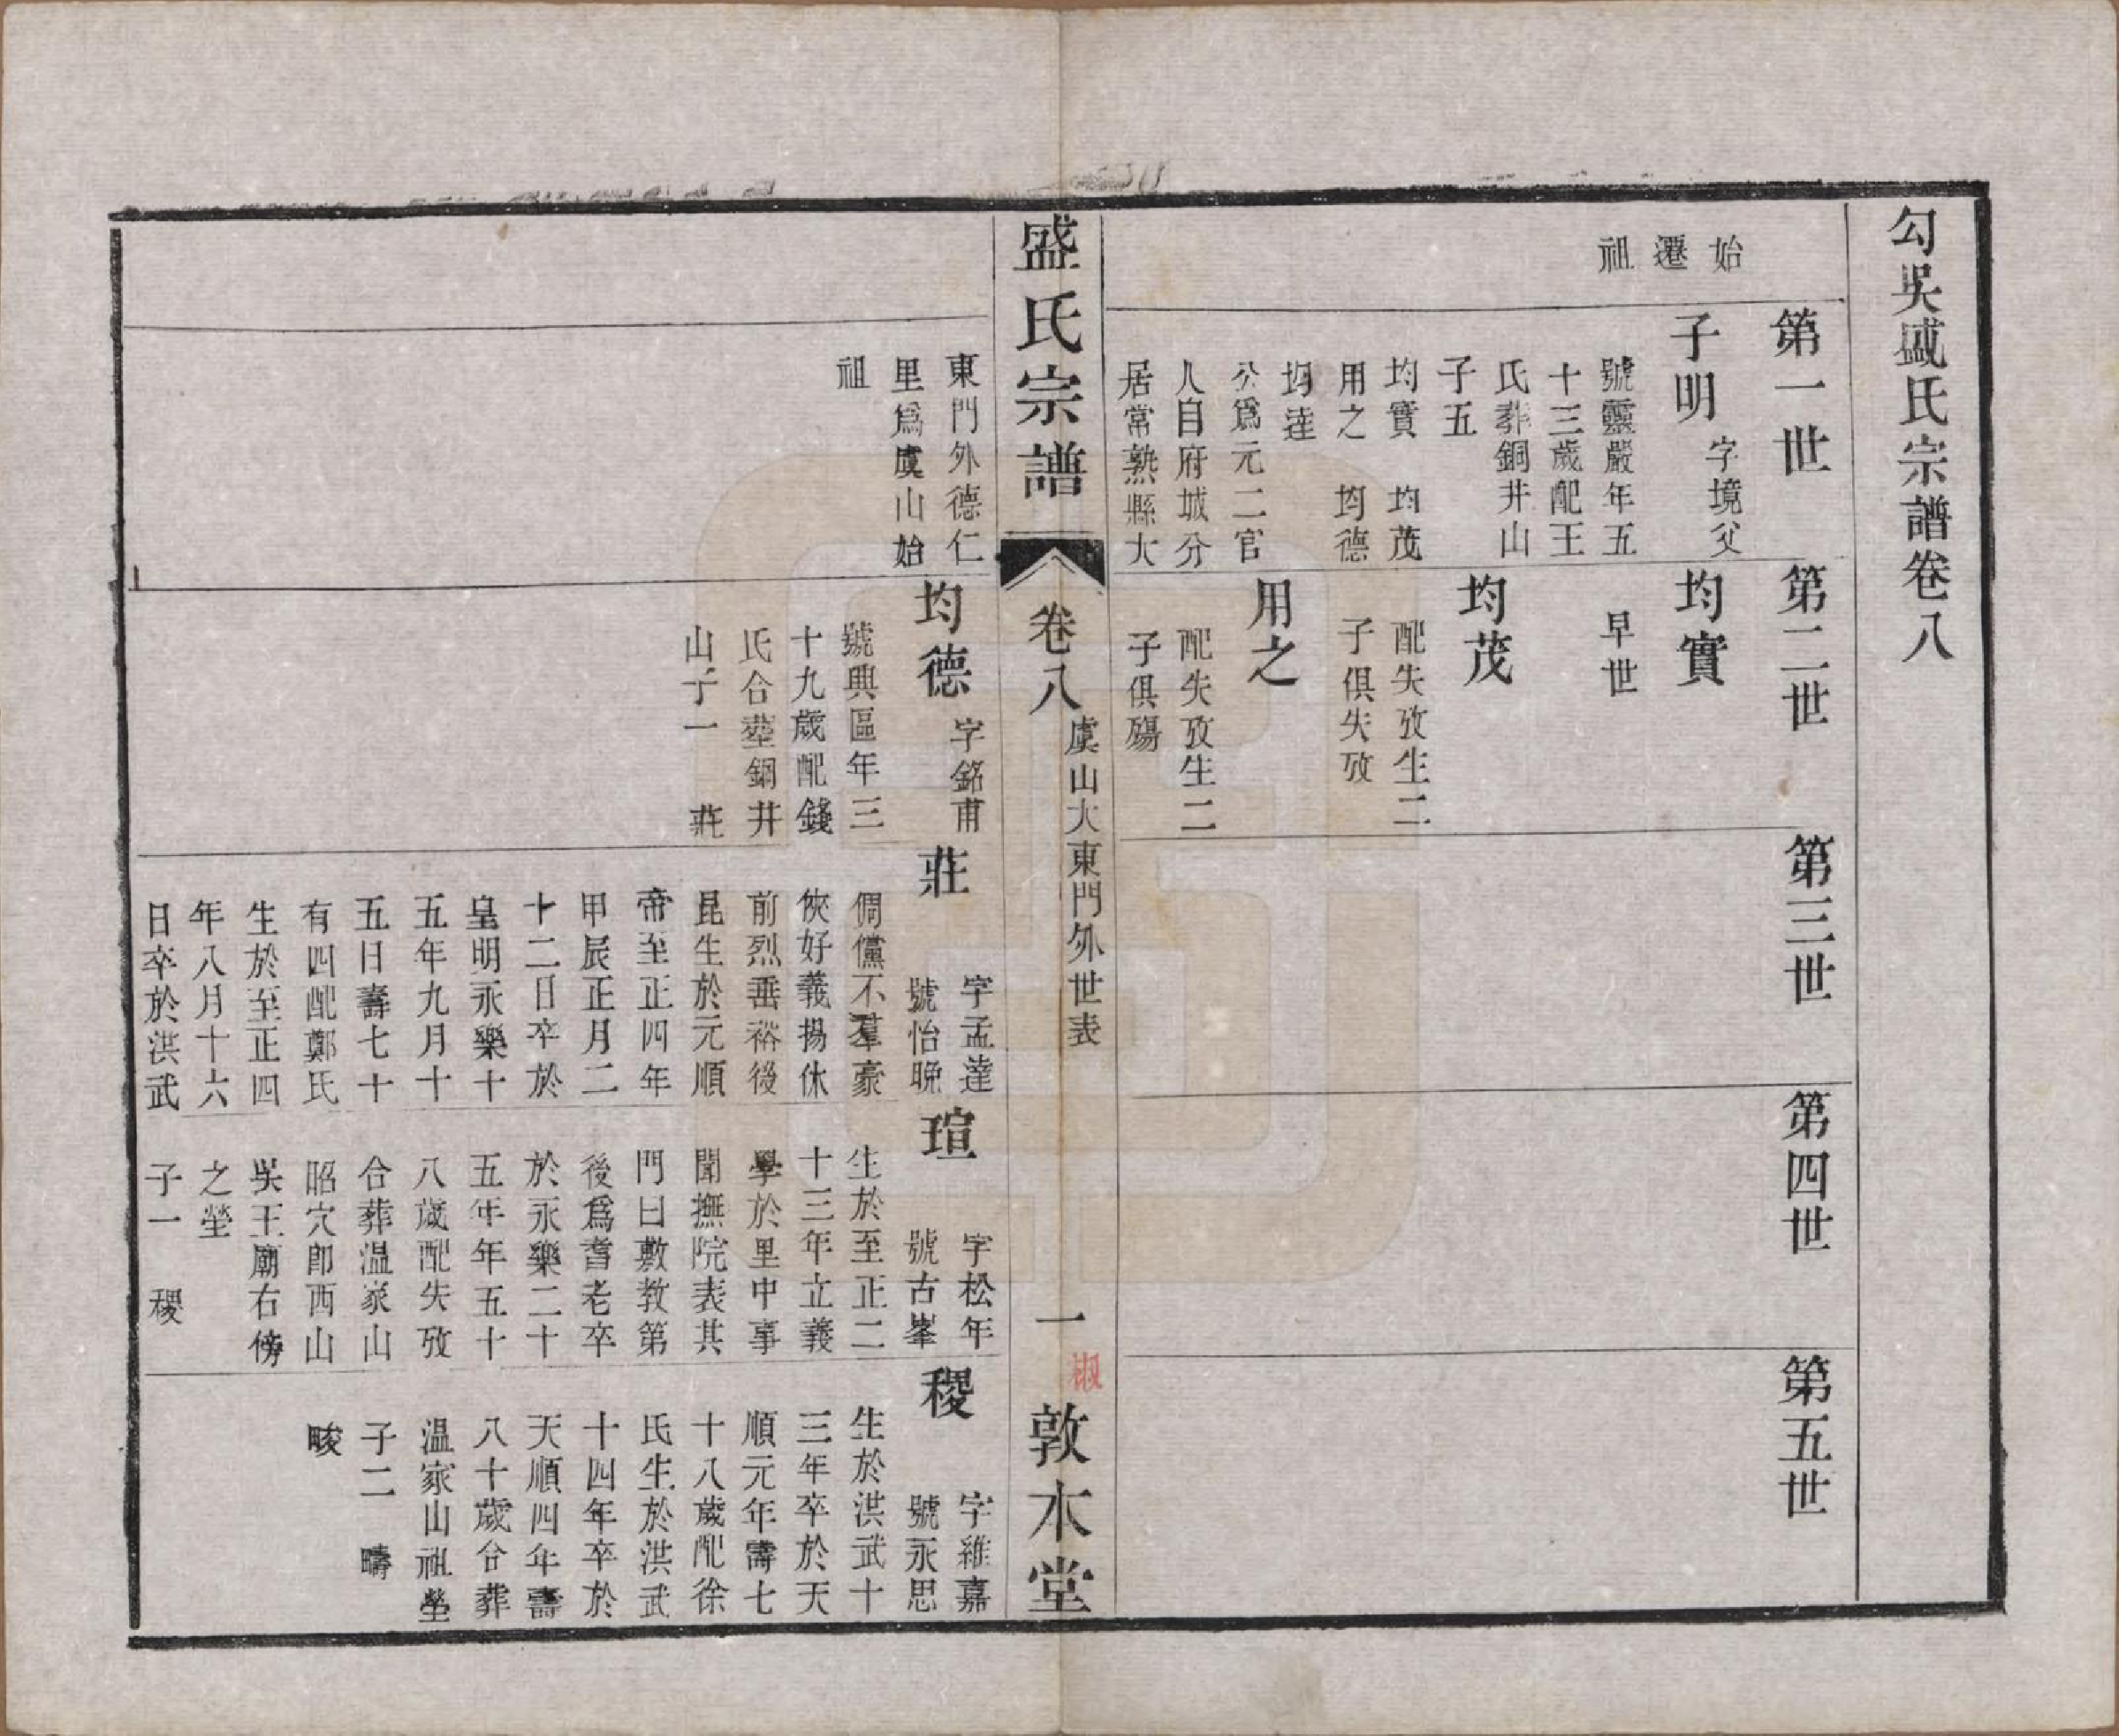 勾吳盛氏宗譜卷八
始
遷
祖
第一世
子明 字境父
號靈嚴年五
十三歲配王
氏葬銅井山
子五
均實 均茂
用之 均德
均達
公爲元二官
人自府城分
居常熟縣大
第二世
均實
早世
均茂
配失攷生二
子俱失攷
用之
配失攷生二
子俱殤
第三世
第四世
第五世
盛氏宗譜 卷八 虞山大東門外世表 一 敦本堂
椒
東門外德仁
里爲虞山始
祖
均德 字銘甫
號興區年三
十九歲配錢
氏合塟銅井
山子一 莊
莊 字孟達
號怡晚
倜儻不羣豪
俠好義揚休
前烈垂裕後
昆生於元順
帝至正四年
甲辰正月二
十二日卒於
皇明永樂十
五年九月十
五日壽七十
有四配鄭氏
生於至正四
年八月十六
日卒於洪武
瑄 字松年
號古峯
生於至正二
十三年立義
學於里中事
聞撫院表其
門曰敷教第
後爲耆老卒
於永樂二十
五年年五十
八歲配失攷
合葬温家山
昭穴卽西山
吳王廟右傍
之塋
子一 稷
稷 字維嘉
號永思
生於洪武十
三年卒於天
順元年壽七
十八歲配徐
氏生於洪武
十四年卒於
天順四年壽
八十歲合葬
温家山祖塋
子二 疇
畯